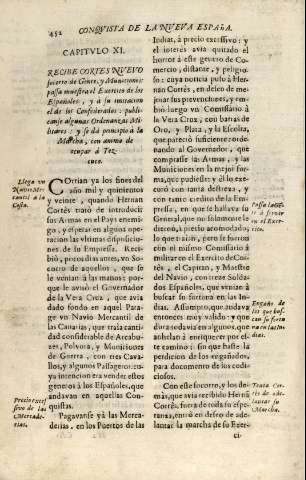 452
CONQUISTA DE LA NUEVA ESPAÑA.
CAPITVLO XI.
RECIBE CORTES NVEVO
socorro de Gente, y Municiones:
passa muestra el Exercito de los
Españoles, y à su imitacion
el de los Confederados: publi-
canse algunas Ordenanzas Mi-
litares: y se dà principio à la
Marcha, con animo de
ocupar à Tez-
cuco.
Llega vn
Navio Mer-
cantil à la
Costa.
COrrian ya los fines del
año mil y quinientos
y veinte, quando Hernan
Cortès tratò de introducir
sus Armas en el Pays enemi-
go, y esperar en alguna opera-
cion las vltimas disposicio-
nes de su Empressa. Reci-
biò, pocos dias antes, vn So-
corro de aquellos, que se
le venian à las manos: por-
que le avisò el Governador
de la Vera Cruz, que avia
dado fondo en aquel Para-
ge vn Navio Mercantil de
las Canarias, que traìa canti-
dad considerable de Arcabu-
zes, Polvora, y Municiones
de Guerra, con tres Cava-
llos, y algunos Passageros: cu-
ya intencion era vender estos
generos à los Españoles, que
andavan en aquellas Con-
quistas.
Precio exces-
sivo de las
Mercade-
rias.
Pagavanse yà las Merca-
derias, en los Puertos de las
Indias, à precio excessivo: y
el interès avia quitado el
horror à este genero de Co-
mercio, distante, y peligro-
so: cuya noticia puso à Her-
nan Cortès, en deseo de me-
jorar sus prevenciones, y em-
biò luego vn Comissario à
la Vera Cruz, con barras de
Oro, y Plata, y la Escolta,
que pareciò suficiente: orde-
nando al Governador, que
comprasse las Armas, y las
Municiones en la mejor for-
ma, que pudiesse: y èl lo exe-
cutò con tanta destreza, y con
tanto credito de la Em-
pressa, en que se hallava su
General, que no solamente le
dieron, à precio acomodado,
lo que traìan, pero se fueron
con el mismo Comissario à
militar en el Exercito de Cor-
tès, el Capitan, y Maestre
del Navio, con treze Solda-
dos Españoles, que venian à
buscar su fortuna en las In-
dias. Assumpto, que andava
entonces muy valido: y que
dura todavia en algunos, que
anhelan à enriquecer por este
camino: sin que baste la
perdicion de los engañados,
para documento de los codi-
ciosos.
Passa la Gen-
te à servir
en el Exer-
cito.
Engaño de
los que bus-
can su fortu-
na en las In-
dias.
Con este socorro, y los de-
màs, que avia recibido Hernã
Cortès, fuera de toda su espe-
ranza, entrò en deseo de ade-
lantar la marcha de su Exer-
ci-
Trata Cor-
tès de ade-
lantar su
Marcha.